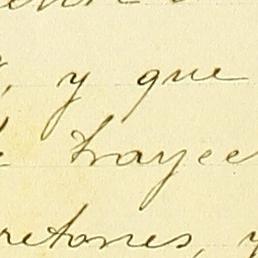 , y que
trayec
retones, y